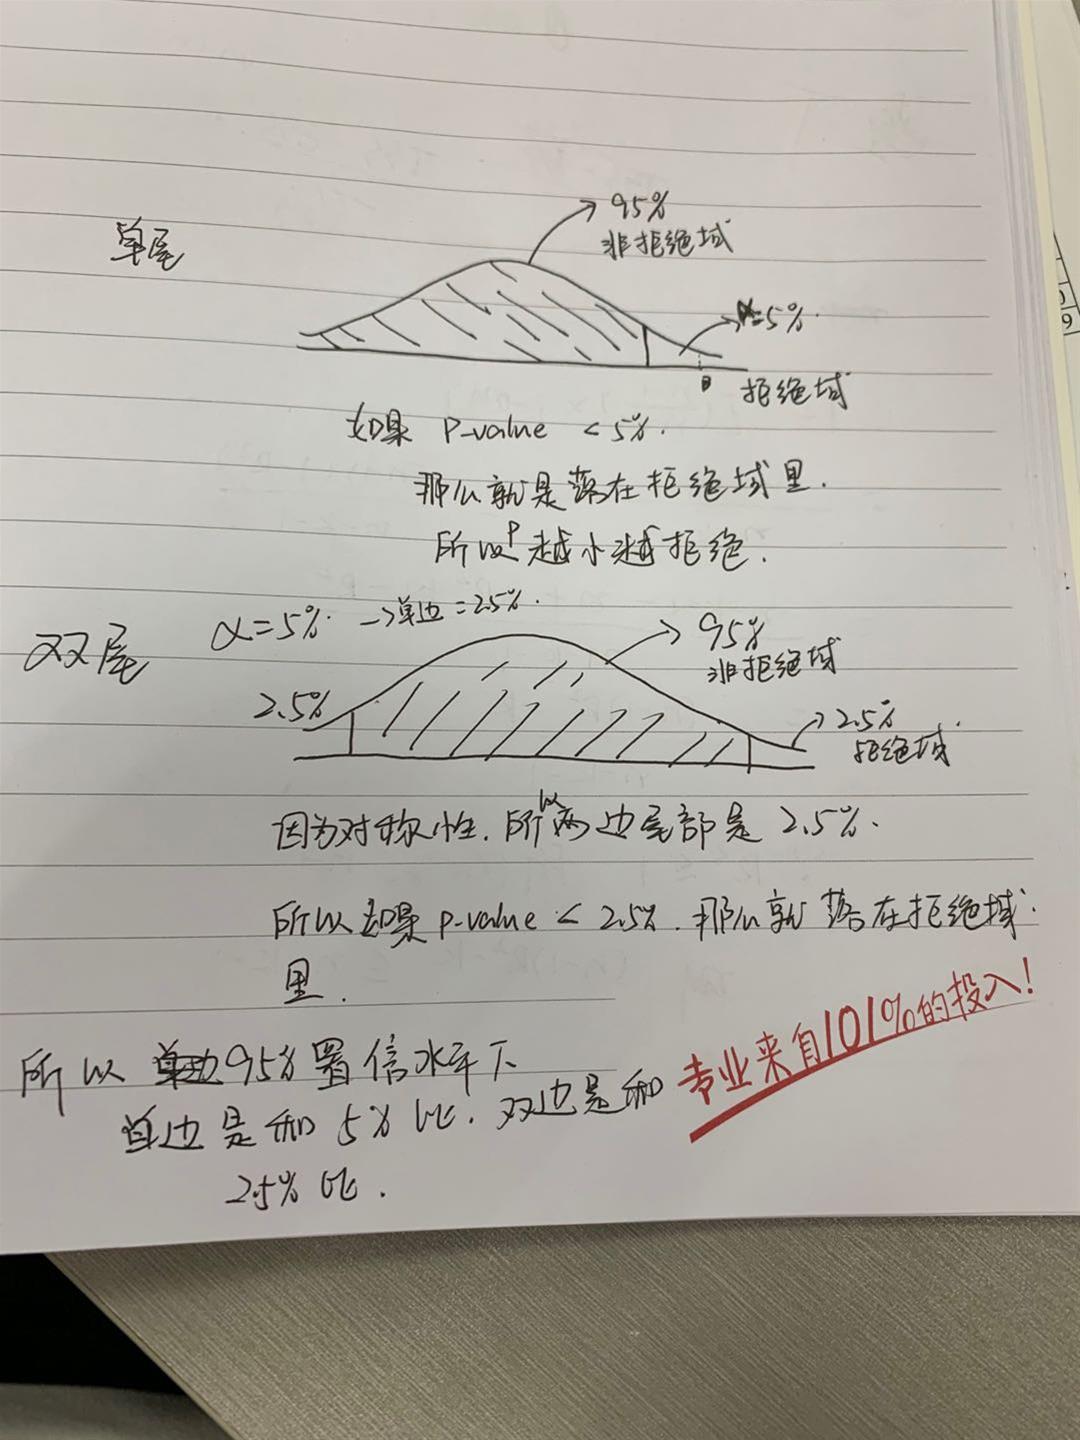 单尾
95%
非拒绝域
α=5%
拒绝域
如果 P-value < 5%.
那么就是落在拒绝域里.
所以P越小越拒绝.
双尾
α=5% →单边=2.5%.
95%
非拒绝域
2.5%
2.5%
拒绝域
因为对称性.所以两边尾部是 2.5%.
所以如果 p-value < 2.5%.那么就落在拒绝域
里.
所以 95%置信水平下
单边是和 5% 比.双边是和
2.5% 比.
专业来自101%的投入!